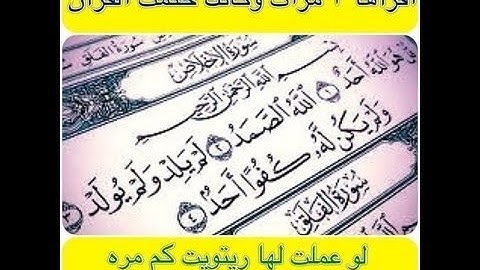 اقرأها مرات وكأنك ختمت القرآن
سُورَةُ الفَلَقِ
سُورَةُ الإِخْلَاصِ
بِسْمِ اللَّهِ الرَّحْمَٰنِ الرَّحِيمِ
قُلْ هُوَ اللَّهُ أَحَدٌ ١ اللَّهُ الصَّمَدُ ٢ لَمْ يَلِدْ وَلَمْ يُولَدْ ٣
وَلَمْ يَكُن لَّهُ كُفُوًا أَحَدٌ ٤
سُورَةُ الفَلَقِ
لو عملت لها ريتويت كم مره